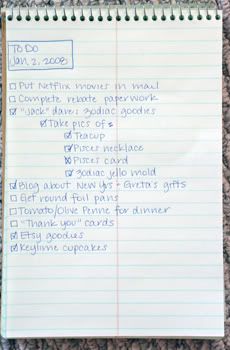 To Do
Jan. 2, 2008
Put Netflix movies in mail
Complete rebate paperwork
"Jack" dares: zodiac goodies
Take pics of:
Teacup
Pisces necklace
Pisces card
Zodiac jello mold
Blog about New Yrs + Greta's gifts
Get round foil pans
Tomato/Olive Penne for dinner
"Thank you" cards
Etsy goodies
Keylime cupcakes